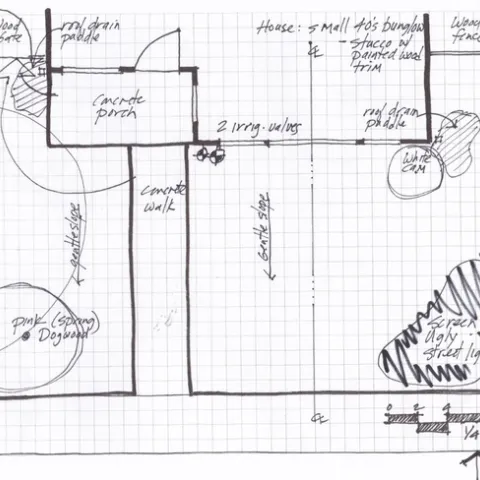 roof drain
paddle
House: small 40's bunglow
- stucco w/
painted wood
trim
Wood
fence
Wood
Gate
concrete
porch
2 irrig. valves
roof drain
paddle
White
Cam
Concrete
walk
gentle slope
Gentle slope
Pink (Spring)
Dogwood
Screen
Ugly
street lig
0 2 4
1/4